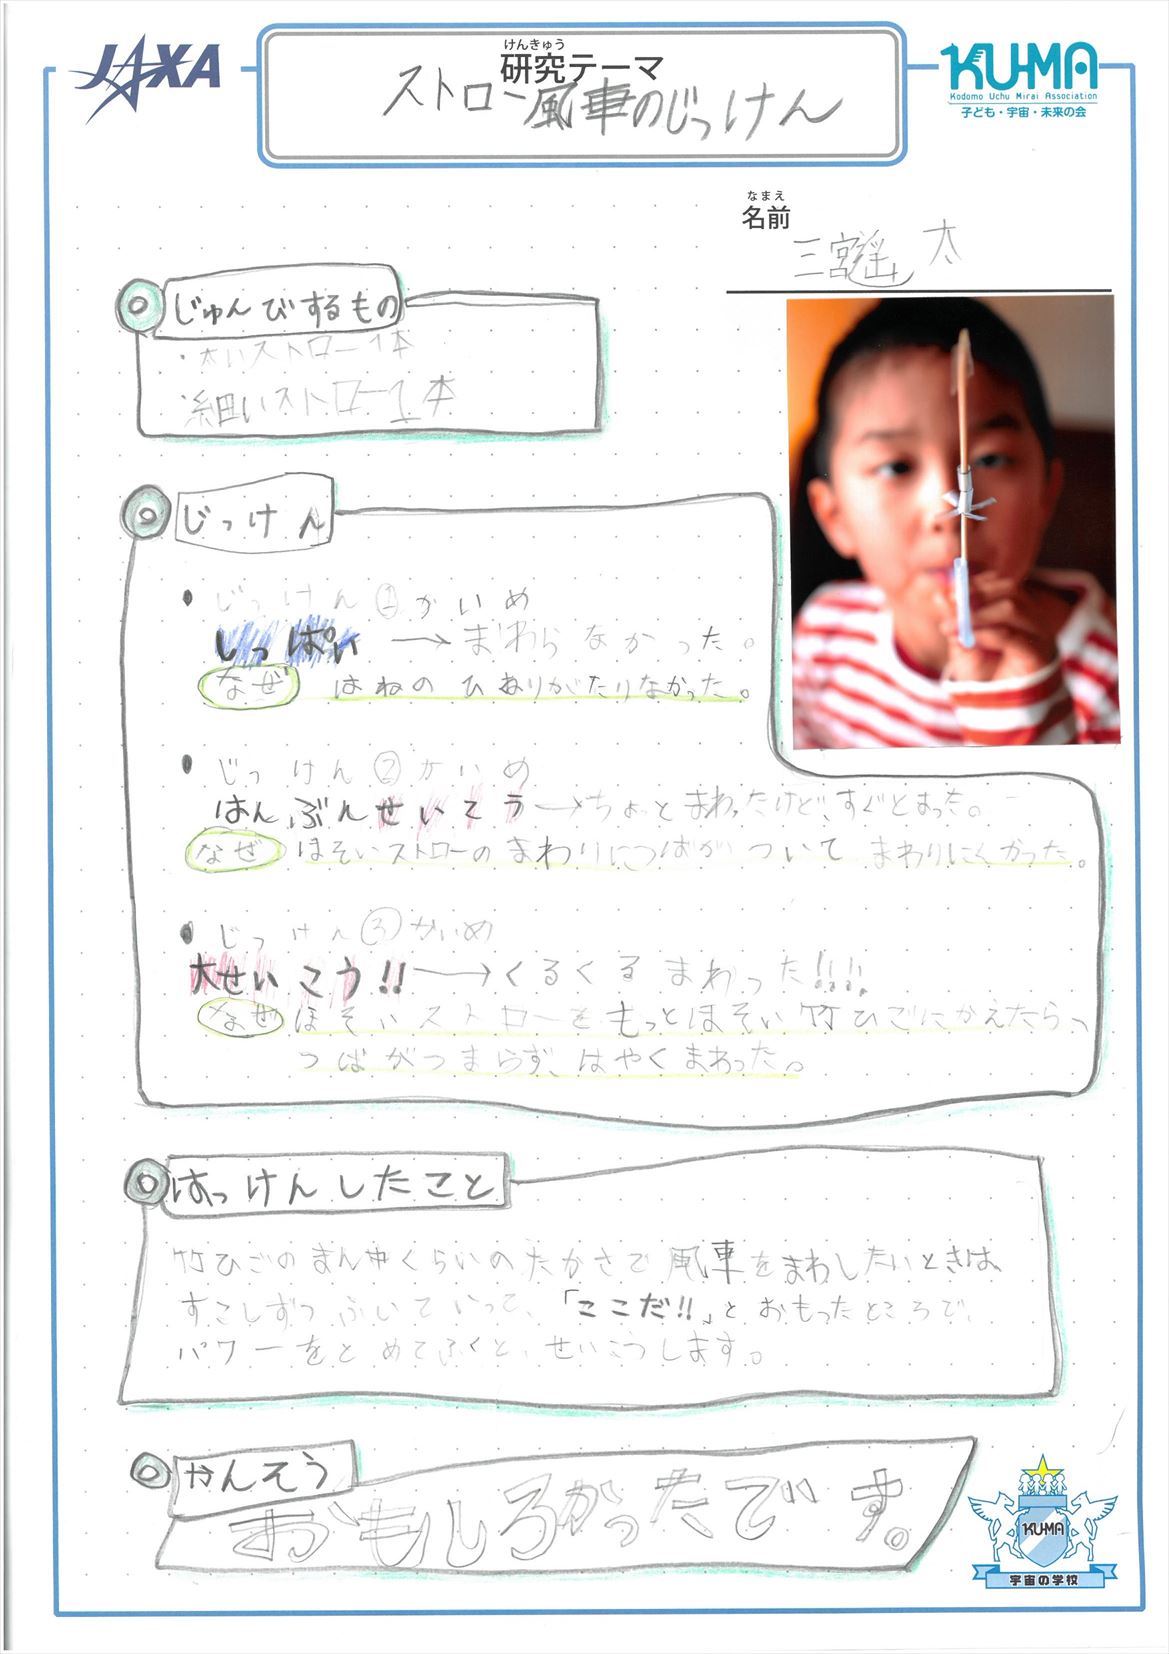 JAXA
けんきゅう
研究テーマ
ストロー風車のじっけん
KU-MA
Kodomo Uchu Mirai Association
子ども・宇宙・未来の会
なまえ
名前
三宮 太
じゅんびするもの
・太いストロー1本
・細いストロー1本
じっけん
じっけん①かいめ
しっぱい→まわらなかった。
なぜ はねのひねりがたりなかった。
じっけん②かいめ
はんぶんせいこう→ちょっとまわったけど、すぐとまった。
なぜ ほそいストローのまわりにつばがついてまわりにくかった。
じっけん③かいめ
大せいこう!!→くるくるまわった!!!!
なぜ ほそいストローをもっとほそい竹ひごにかえたら、
つばがつまらず、はやくまわった。
はっけんしたこと
竹ひごのまん中くらいのたかさで風車をまわしたいときは、
すこしずつふいていって、「ここだ!!」とおもったところで、
パワーをとめてふくと、せいこうします。
かんそう
おもしろかったです。
KU-MA
宇宙の学校